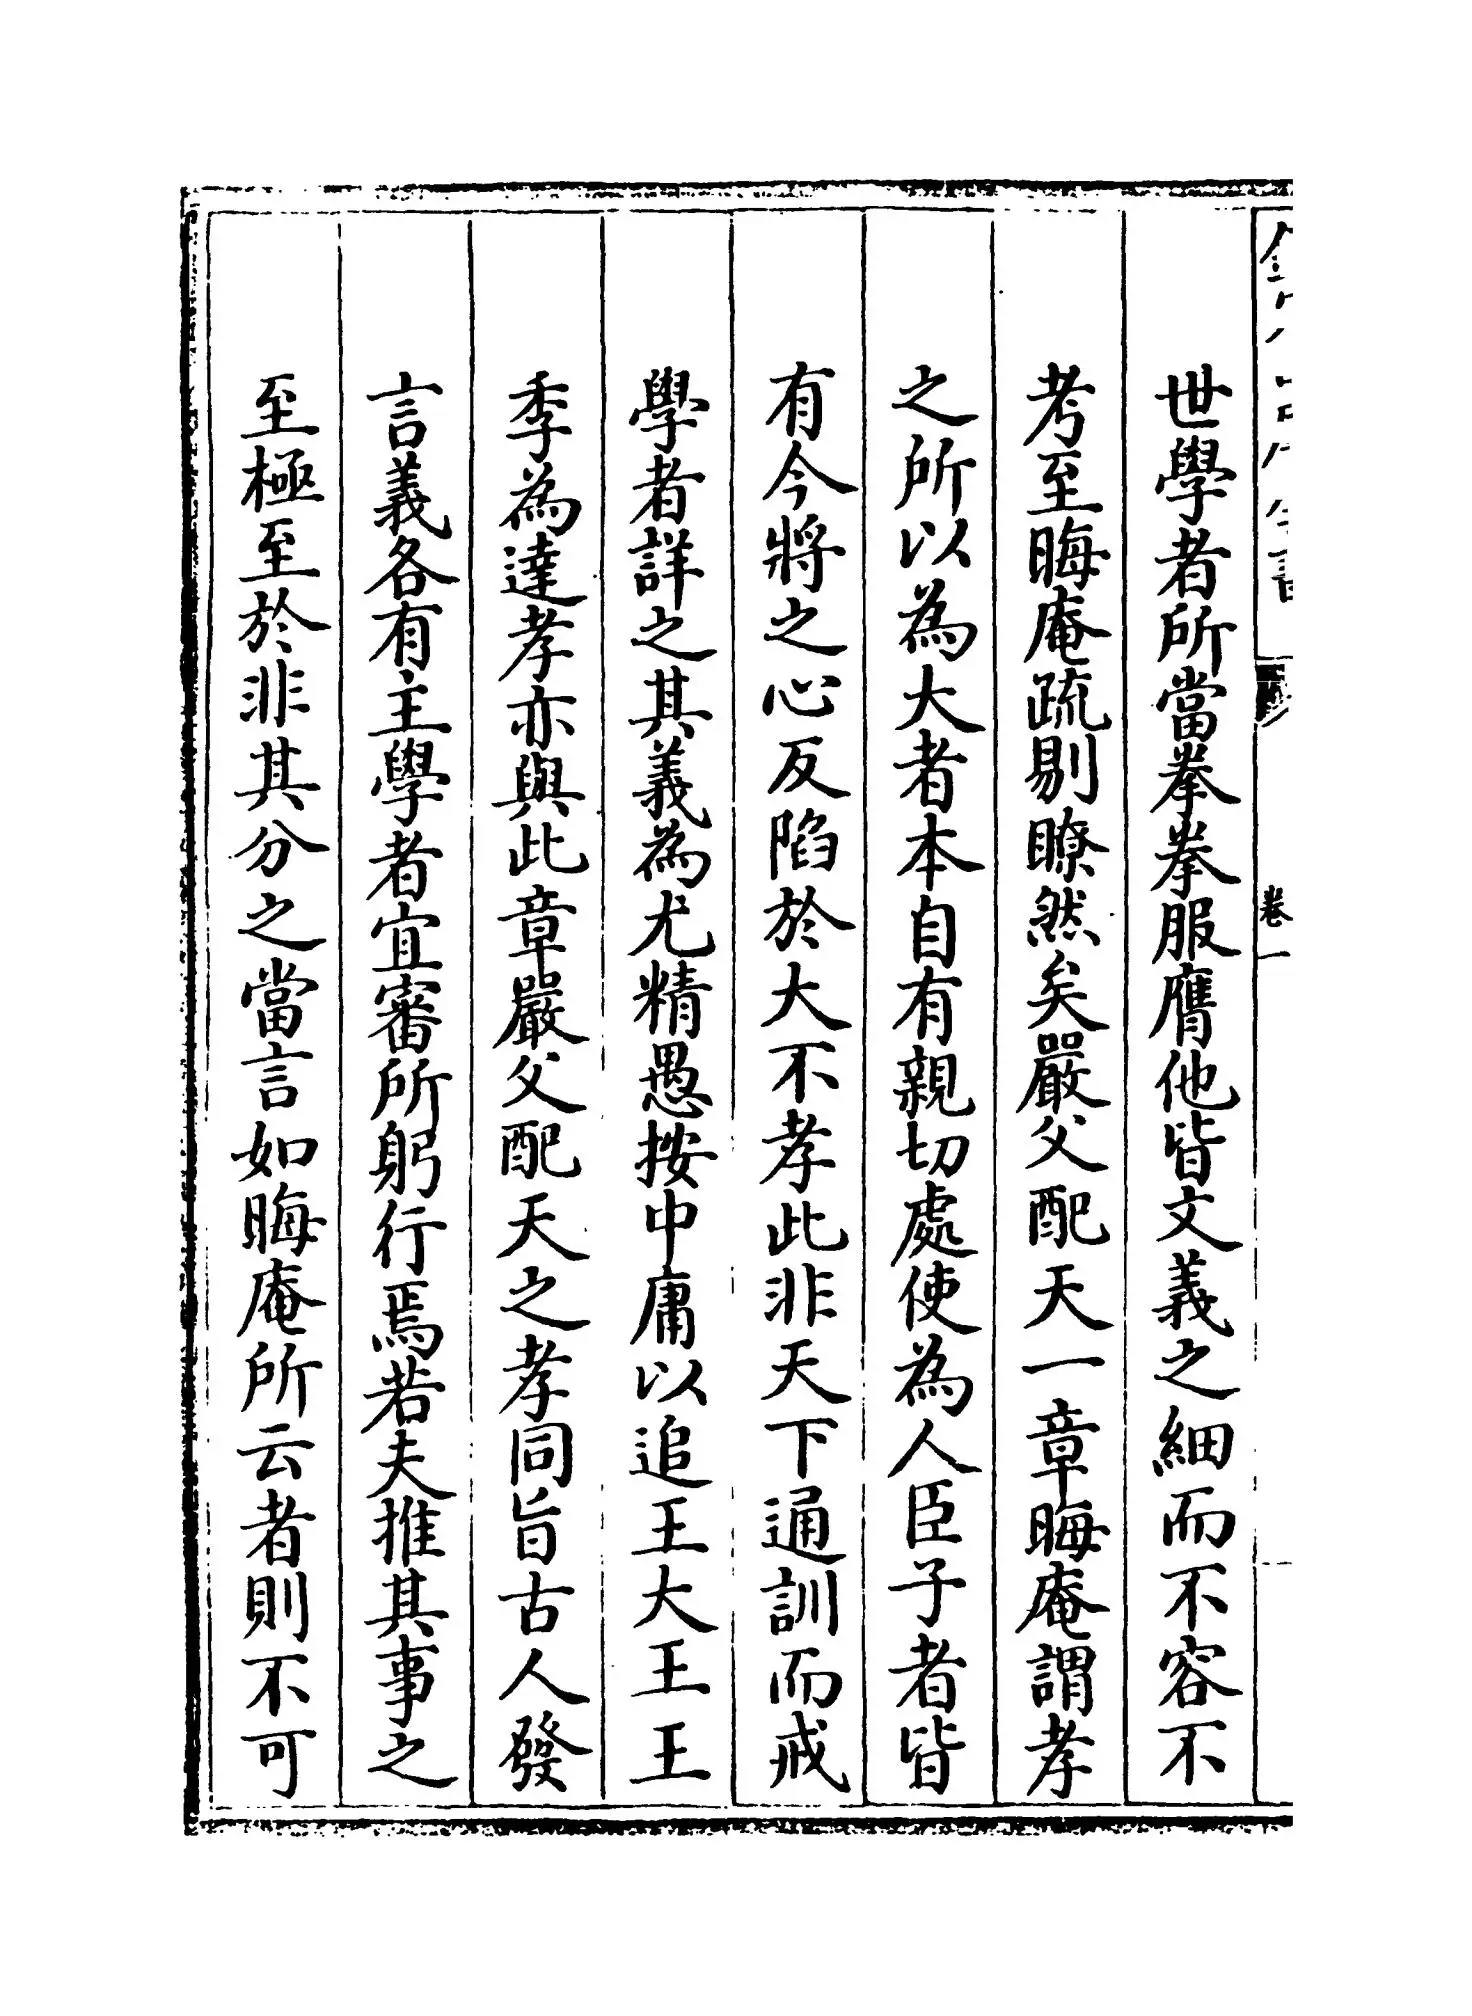 世學者所當拳拳服膺他皆文義之細而不容不
考至晦庵疏剔瞭然矣嚴父配天一章晦庵謂孝
之所以為大者本自有親切處使為人臣子者皆
有今將之心反陷於大不孝此非天下通訓而戒
學者詳之其義為尤精愚按中庸以追王大王王
季為達孝亦與此章嚴父配天之孝同旨古人發
言義各有主學者宜審所躬行焉若夫推其事之
至極至於非其分之當言如晦庵所云者則不可
卷一